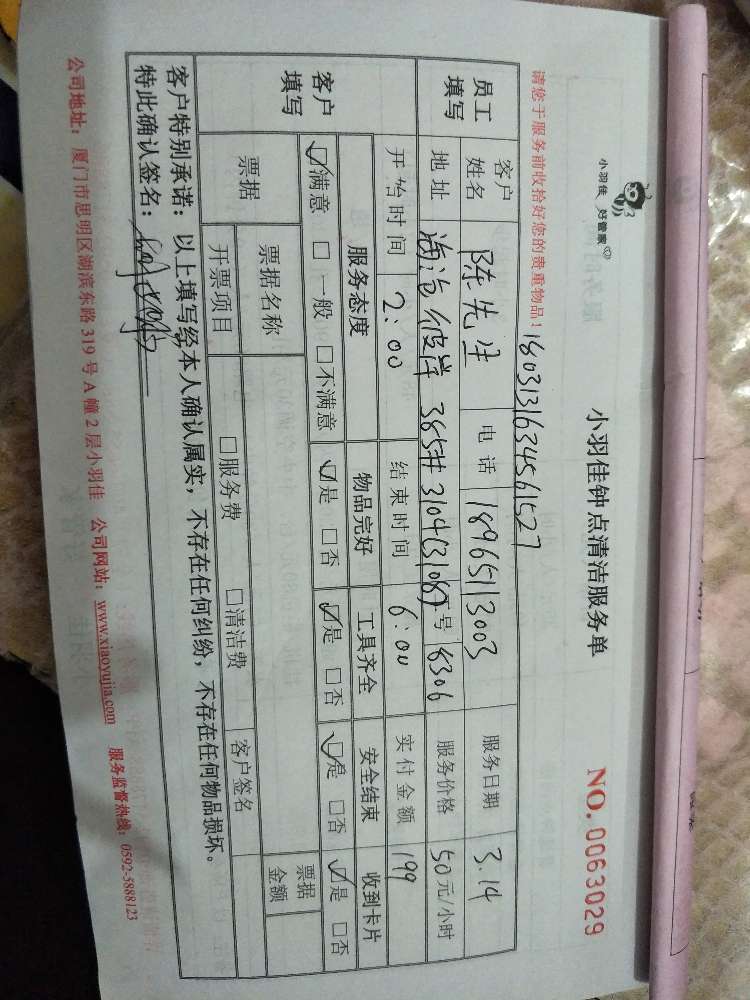 小羽佳 好管家
小羽佳钟点清洁服务单
NO.0063029
请您于服务前收拾好您的贵重物品！
1803131634561527
员工填写 客户姓名 陈先生 电话 18965113003 服务日期 3.14
地址 海沧 彼岸 365# 3104(3108) 工号 8306 服务价格 50元/小时
开始时间 2:00 结束时间 6:00 实付金额 199
客户填写 服务态度 物品完好 工具齐全 安全结束 收到卡片
☑满意 □一般 □不满意 ☑是 □否 ☑是 □否 ☑是 □否 ☑是 □否
票据 票据名称 票据金额
开票项目 □服务费 □清洁费 客户签名
客户特别承诺：以上填写经本人确认属实，不存在任何纠纷，不存在任何物品损坏。
特此确认签名：
公司地址：厦门市思明区湖滨东路319号A幢2层小羽佳 公司网站：www.xiaoyujia.com 服务监督热线：0592-5888123